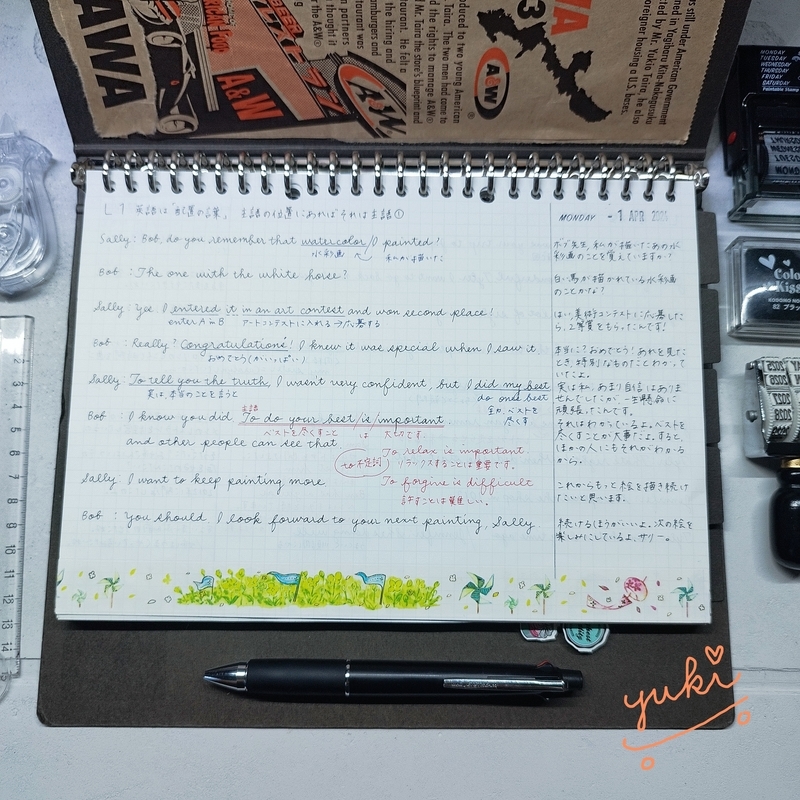 AWA
A&W
A&W
A&W
for the A&W
n partners
thought it
hamburgers and
the hiring and
staurant. He felt a
Mr. Taira the store's blueprint and
d the rights to manage A&W
. Taira. The two men had come to
roduced to two young American
WA
3
es still under American Government
ned in Yagibaru Kita-Nakagusuku
ted by Mr. Yukio Taira, he also
foreigner housing a U.S. bases.
MONDAY
TUESDAY
WEDNESDAY
THURSDAY
FRIDAY
SATURDAY
L1 英語は「配置の言葉」 主語の位置にあればそれは主語①
MONDAY - 1 APR 2021
Sally: Bob, do you remember that watercolor / I painted?
水彩画 私が描いた
ボブ先生、私が描いたあの水
彩画のことを覚えていますか?
Bob : The one with the white horse?
白い馬が描かれている水彩画
のことかな?
Sally: Yes. I entered it in an art contest and won second place!
enter A in B アートコンテストに入れる→応募する
はい、美術コンテストに応募した
ら、2等賞をもらったんです!
Bob : Really? Congratulations! I knew it was special when I saw it.
おめでとう(かいっぱい)
本当に?おめでとう!あれを見た
とき、特別なものだとわかって
いたよ。
Sally: To tell you the truth, I wasn't very confident, but I did my best.
実は、本当のことを言うと do one's best
全力、ベストを
尽くす
実は私、あまり自信はありま
せんでしたが、一生懸命に
頑張ったんです。
Bob : I know you did. To do your best/is/important.
主語
ベストを尽くすこと は 大切です.
and other people can see that.
それはわかっているよ。ベストを
尽くすことが大事だよ。すると、
ほかの人にもそれがわかる
から。
to不定詞
To relax is important.
リラックスすることは重要です。
To forgive is difficult
許すことは難しい。
Sally: I want to keep painting more
これからもっと絵を描き続け
たいと思います。
Bob : You should. I look forward to your next painting, Sally.
続けるほうがいいよ。次の絵を
楽しみにしているよ、サリー。
Color
Kiss
yuki